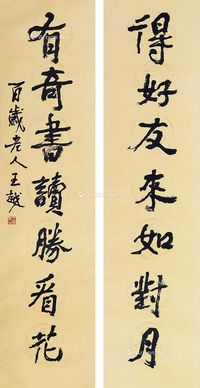 得好友來如對月
有奇書讀勝看花
百歲老人王越